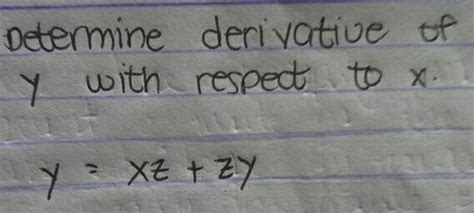 Determine derivative of
y with respect to x.
y = xz + zy